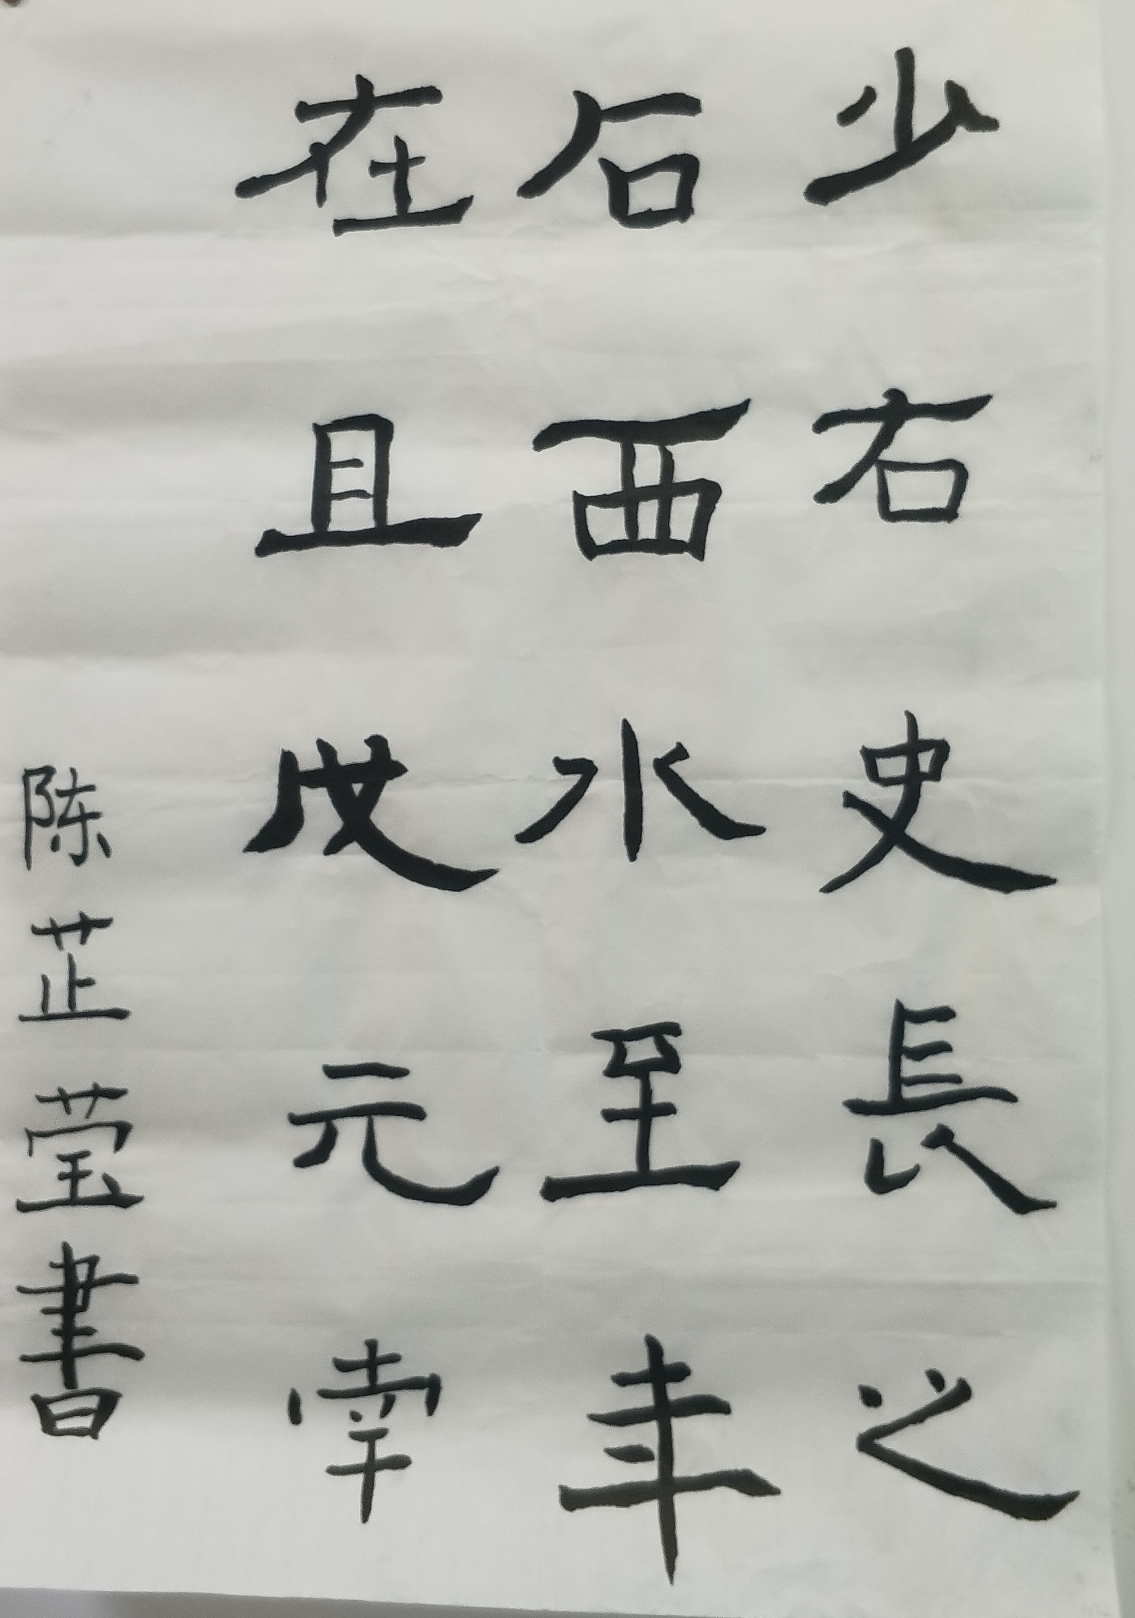 少右史長之
石西水至年
在且戊元南
陈芷莹書